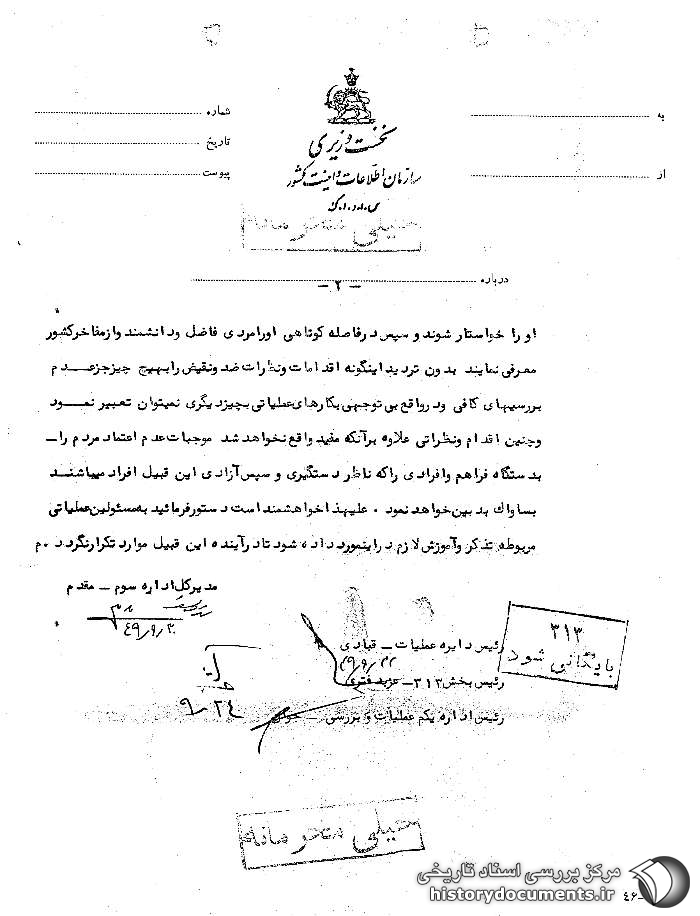 به
شماره
نخست وزیری
تاریخ
سازمان اطلاعات و امنیت کشور
از
پیوست
خیلی محرمانه
درباره
-۲-
او را خواستار شوند و سپس در فاصله کوتاهی او را مردی فاضل و دانشمند و از مفاخر کشور
معرفی نمایند بدون تردید اینگونه اقدامات و نظرات ضد و نقیض را بهیچ چیز جز عدم
بررسیهای کافی و در واقع بی توجهی بکارهای عملیاتی بچیز دیگری نمیتوان تعبیر نمود
و چنین اقدام و نظراتی علاوه بر آنکه مفید واقع نخواهد شد موجبات عدم اعتماد مردم را-
بدستگاه فراهم و افرادی را که ناظر دستگیری و سپس آزادی این قبیل افراد میباشند
بساواک بدبین خواهد نمود . علیهذا خواهشمند است دستور فرمائید به مسئولین عملیاتی
مربوطه تذکر و آموزش لازم در اینمورد داده شود تا در آینده این قبیل موارد تکرار نگردد .م
مدیرکل اداره سوم - مقدم
۴۹/۹/۳۰
۳۱۳
بایگانی شود
رئیس دایره عملیات - قبادی
رئیس بخش ۳۱۳-
رئیس اداره یکم عملیات و بررسی -
۹/۲۴
خیلی محرمانه
مرکز بررسی اسناد تاریخی
historydocuments.ir
۴۶